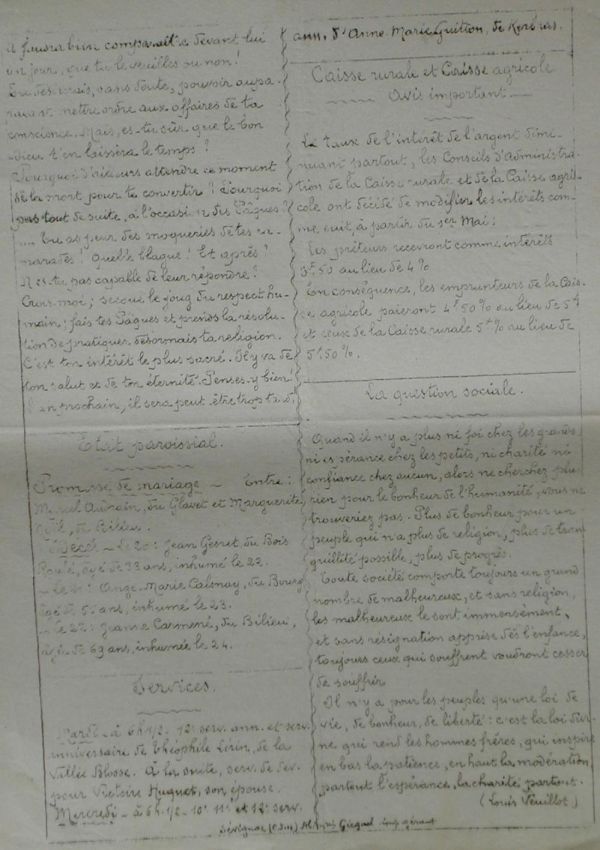 il faudra bien comparaître devant lui
un jour, que tu le veuilles ou non!
Tu dis vrais, sans doute, pouvoir aupa-
ravant mettre ordre aux affaires de ta
conscience. Mais, es-tu sûr que le bon
Dieu t'en laissera le temps?
Pourquoi d'ailleurs attendre ce moment
de la mort pour te convertir? Pourquoi
pas tout de suite, à l'occasion des Pâques?
.... Tu as peur des moqueries de tes ca-
marades! Quelle blague! Et après?
N'es-tu pas capable de leur répondre?
Crois-moi; secoue le joug du respect hu-
main; fais tes Pâques et prends la résolu-
tion de pratiquer désormais ta religion.
C'est ton intérêt le plus sacré. Il y va de
ton salut et de ton éternité. Penses-y bien!
L'an prochain, il sera peut être trop tard.
Etat paroissial.
Promesse de mariage - Entre:
du Glavet et Marguerite
du Bilieu.
Décès - Le 20: Jean Gesret, du Bois
âgé de 33 ans, inhumé le 22.
- le 21: Ange-Marie Calmay, du Bourg
âgé de ans, inhumé le 23.
- le 22: Jeanne Carmené, du Bilieu,
âgée de 69 ans, inhumée le 24.
Services.
Mardi - à 6h.1/2 - 12e serv. ann. et serv.
anniversaire de Théophile de la
Vallée Blosse. À la suite, serv. de dev.
pour Victoire Huguet, son épouse.
Mercredi - à 6h.1/2 - 10e 11e et 12e serv.
ann. d'Anne-Marie Guitton, de Kerbras.
Caisse rurale et Caisse agricole
Avis important
Le taux de l'intérêt de l'argent dimi-
nuant partout, les Conseils d'Administra-
tion de la Caisse rurale et de la Caisse agri-
cole ont décidé de modifier les intérêts com-
me suit, à partir du 1er Mai:
Les prêteurs recevront comme intérêts
3f.50 au lieu de 4%
En conséquence, les emprunteurs de la Cais-
se agricole paieront 4f50% au lieu de 5f
et ceux de la Caisse rurale 5f% au lieu de
5f.50%.
La question sociale.
Quand il n'y a plus ni foi chez les grands,
ni espérance chez les petits, ni charité ni
confiance chez aucun, alors ne cherchez plus
rien pour le bonheur de l'humanité, vous ne
trouveriez pas. Plus de bonheur pour un
peuple qui n'a plus de religion, plus de tran-
quillité possible, plus de progrès.
Toute société comporte toujours un grand
nombre de malheureux, et sans religion,
les malheureux le sont immensément,
et sans résignation apprise dès l'enfance,
toujours ceux qui souffrent voudront cesser
de souffrir.
Il n'y a pour les peuples qu'une loi de
vie, de bonheur, de liberté: c'est la loi divi-
ne qui rend les hommes frères, qui inspire
en bas la patience, en haut la modération,
partout l'espérance, la charité partout.
(Louis Veuillot)
Sévignac (C.d.N.) imp. gérant